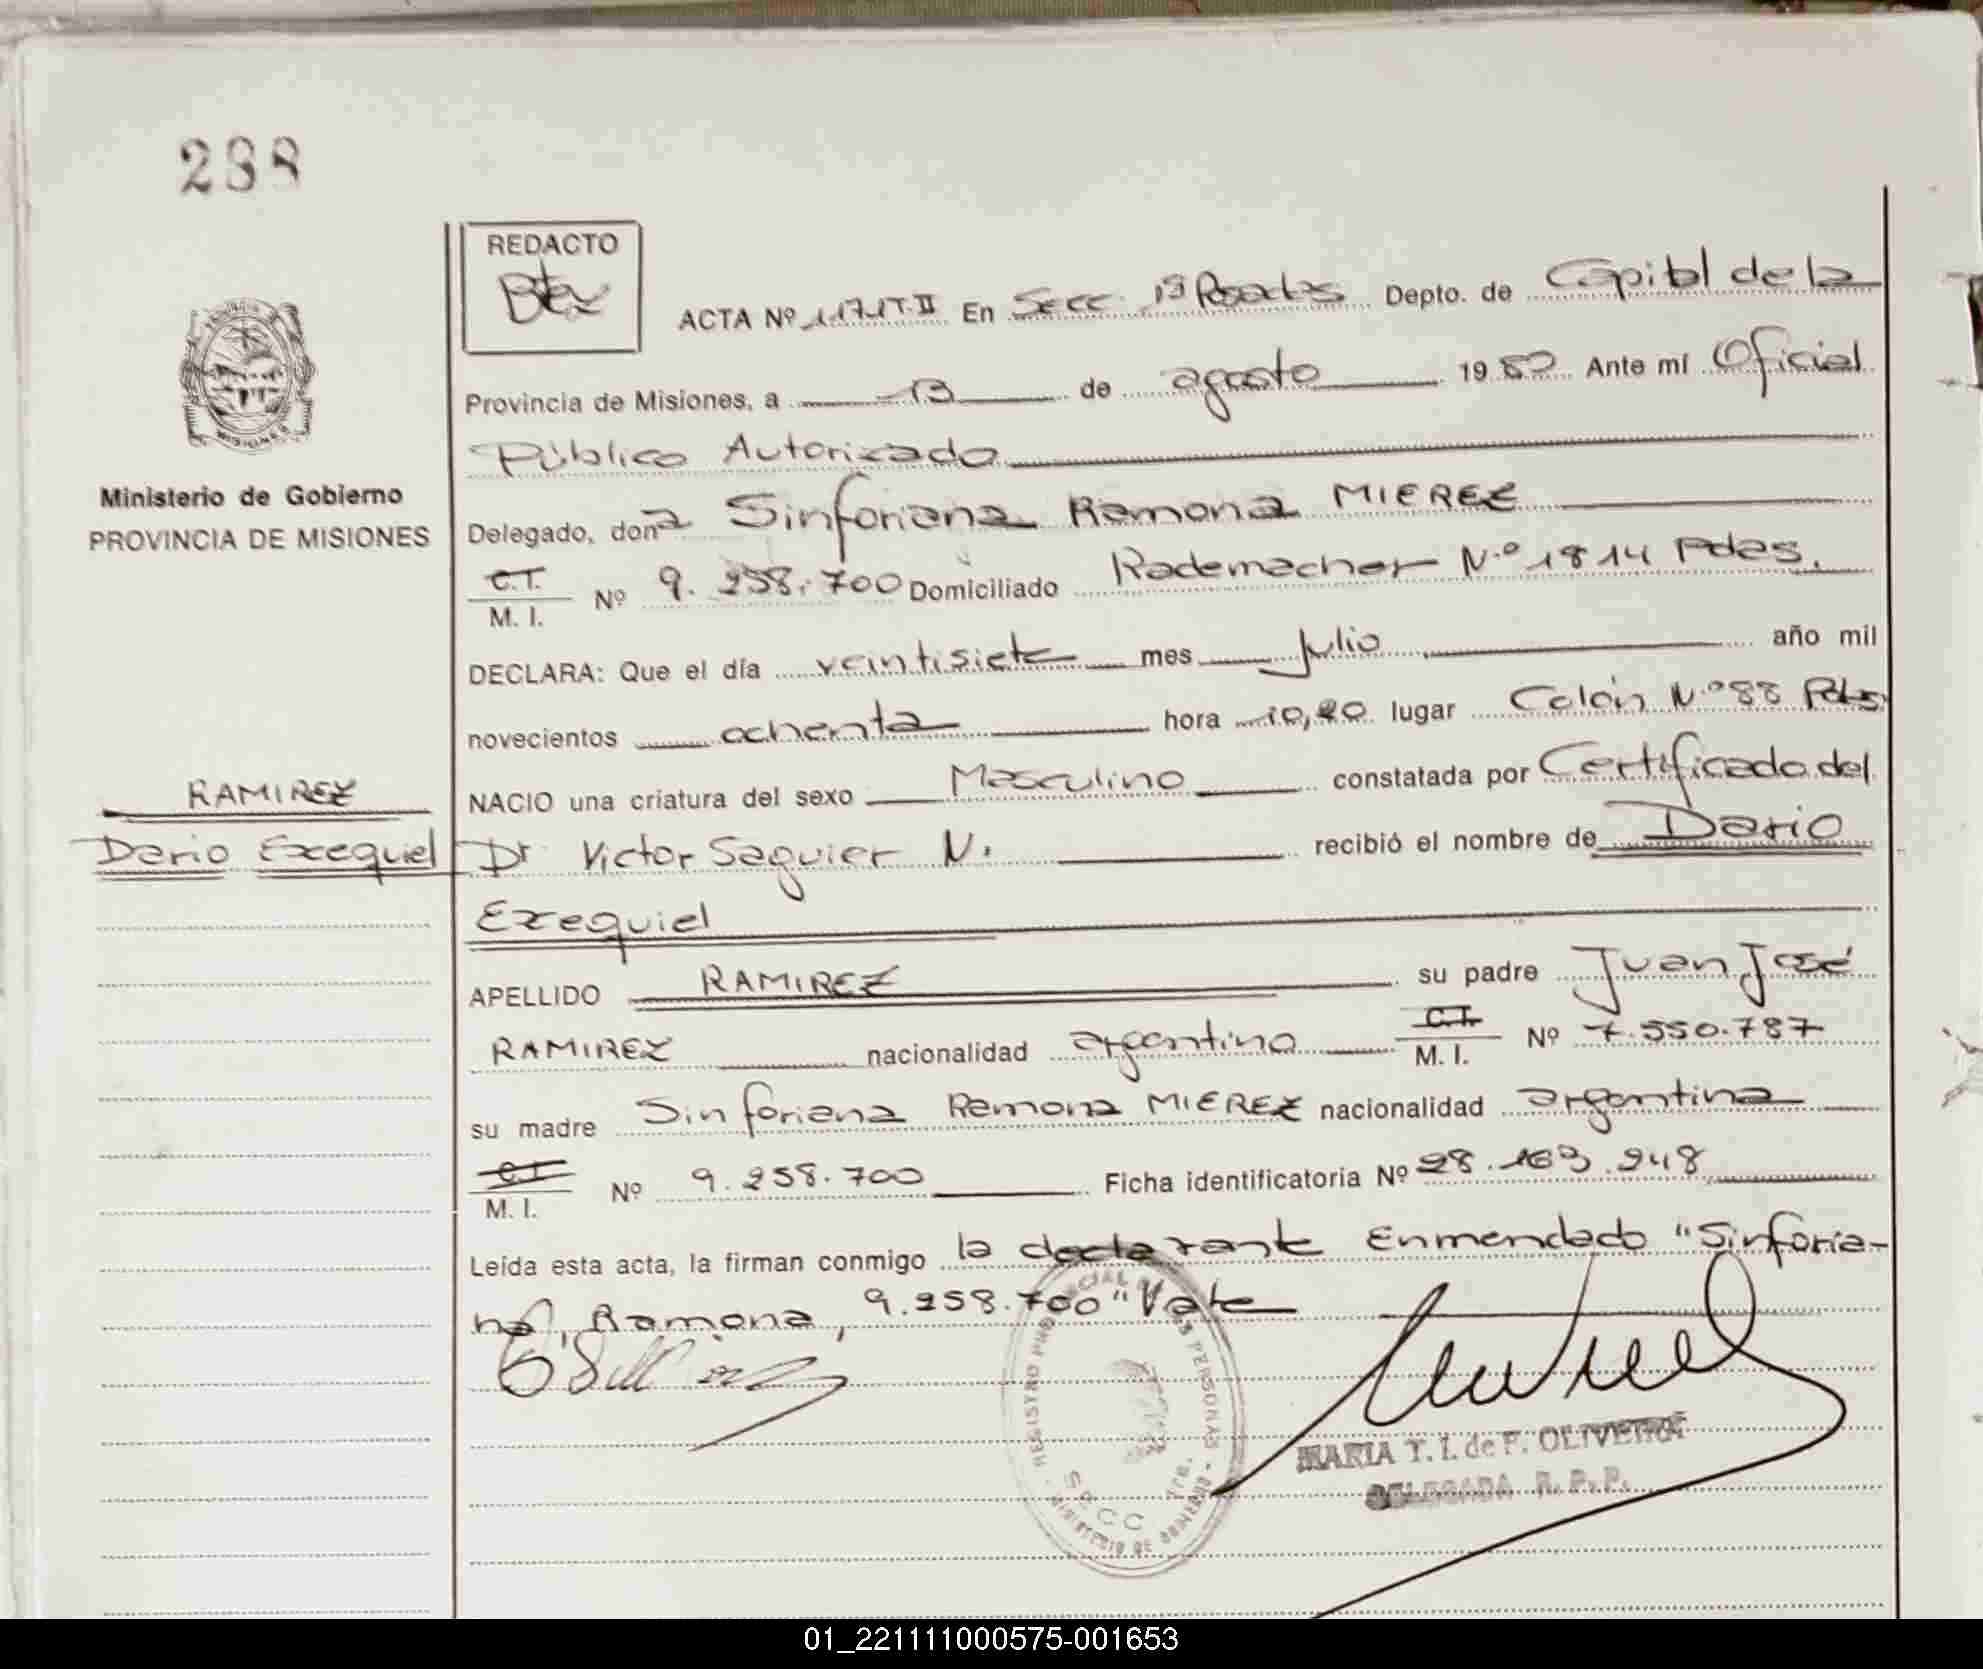 288
REDACTO
ACTA Nº 1171T.II En Secc. 1ª Posadas Depto. de Capital de la
Provincia de Misiones, a 13 de agosto 1980 Ante mí Oficial
Público Autorizado
Ministerio de Gobierno
PROVINCIA DE MISIONES
Delegado, dona Sinforiana Ramona MIEREZ
C.T. M. I. Nº 9.258.700 Domiciliado Rademacher Nº 1814 Pdas.
DECLARA: Que el día veintisiete mes Julio año mil
novecientos ochenta hora 10,20 lugar Colón Nº 88 Pdas
NACIO una criatura del sexo Masculino constatada por Certificado del
RAMIREZ
Dario Exequiel
Dr Victor Saguier N. recibió el nombre de Dario
Exequiel
APELLIDO RAMIREZ su padre Juan José
RAMIREZ nacionalidad argentino C.T. M. I. Nº 7.550.787
su madre Sinforiana Ramona MIEREZ nacionalidad argentina
C.T. M. I. Nº 9.258.700 Ficha identificatoria Nº 28.163.248
Leída esta acta, la firman conmigo la declarante Enmendado "Sinforia-
na, Ramona, 9.258.700" Vale
REGISTRO PROVINCIAL DE LAS PERSONAS
SECC 1ra.
MINISTERIO DE GOBIERNO
MARIA T. I. de F. OLIVEIRA
DELEGADA R. P. P.
01_221111000575-001653